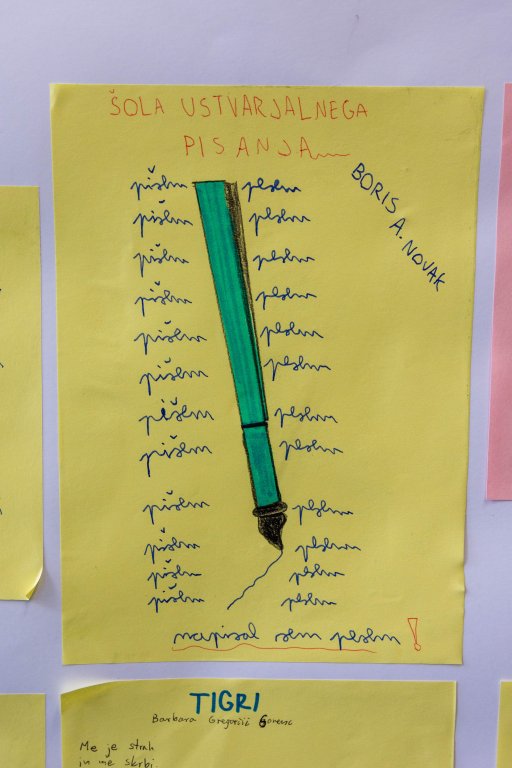 ŠOLA USTVARJALNEGA
PISANJA
BORIS A. NOVAK
pišem pesem
pišem pesem
pišem pesem
pišem pesem
pišem pesem
pišem pesem
pišem pesem
pišem pesem
pišem pesem
pišem pesem
pišem pesem
pišem pesem
napisal sem pesem!
TIGRI
Barbara Gregorič Gorenc
Me je strah
in me skrbi,